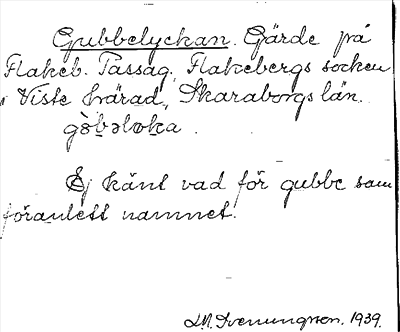 Gubbelyckan. Gärde på
Flakeb. Tassag, Flakebergs socken
i Viste härad, Skaraborgs län.
gòbəloka.
Ej känt vad för gubbe som
föranlett namnet.
1939.